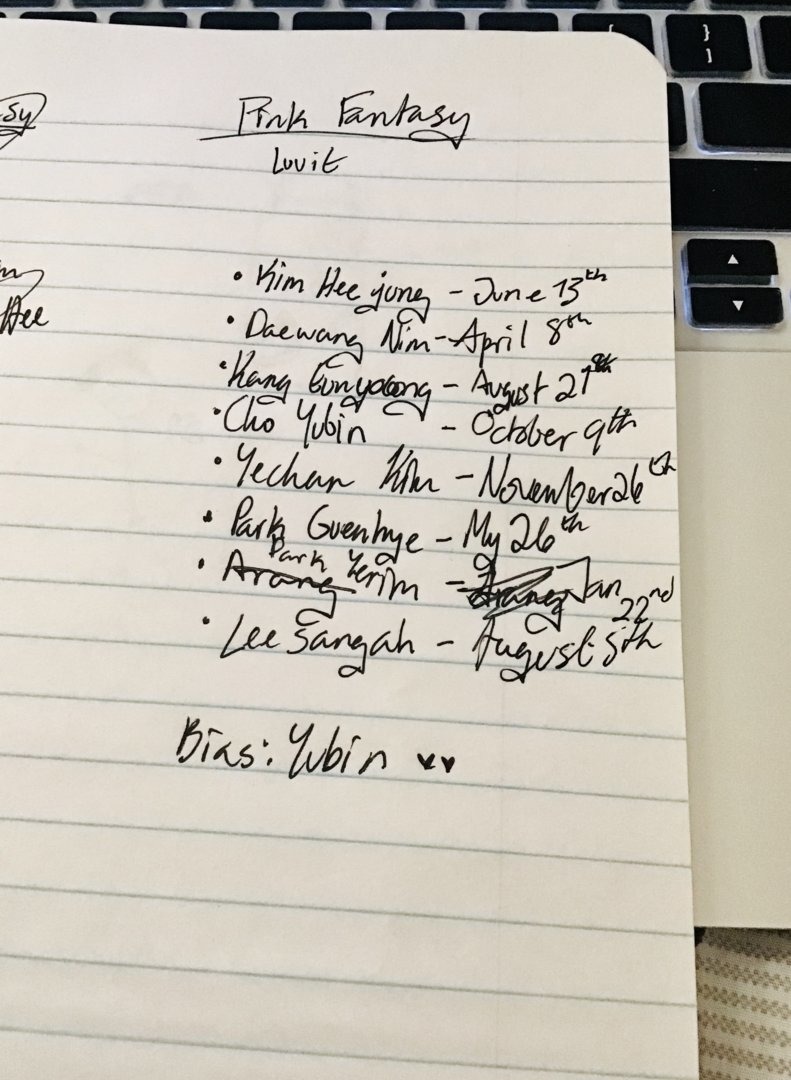 Pink Fantasy
Luvit
• Kim Hee jung - June 13th
• Daewang Nim - April 8th
• Kang Eunyoong - August 27th
• Cho Yubin - October 9th
• Yechan Kim - November 26th
• Park Guenhye - My 26th
• Arang Park Yerim - Jan 22nd
• Lee Sangah - August 5th
Bias: Yubin ♥♥
sy
Hee
}
]
▲
▼